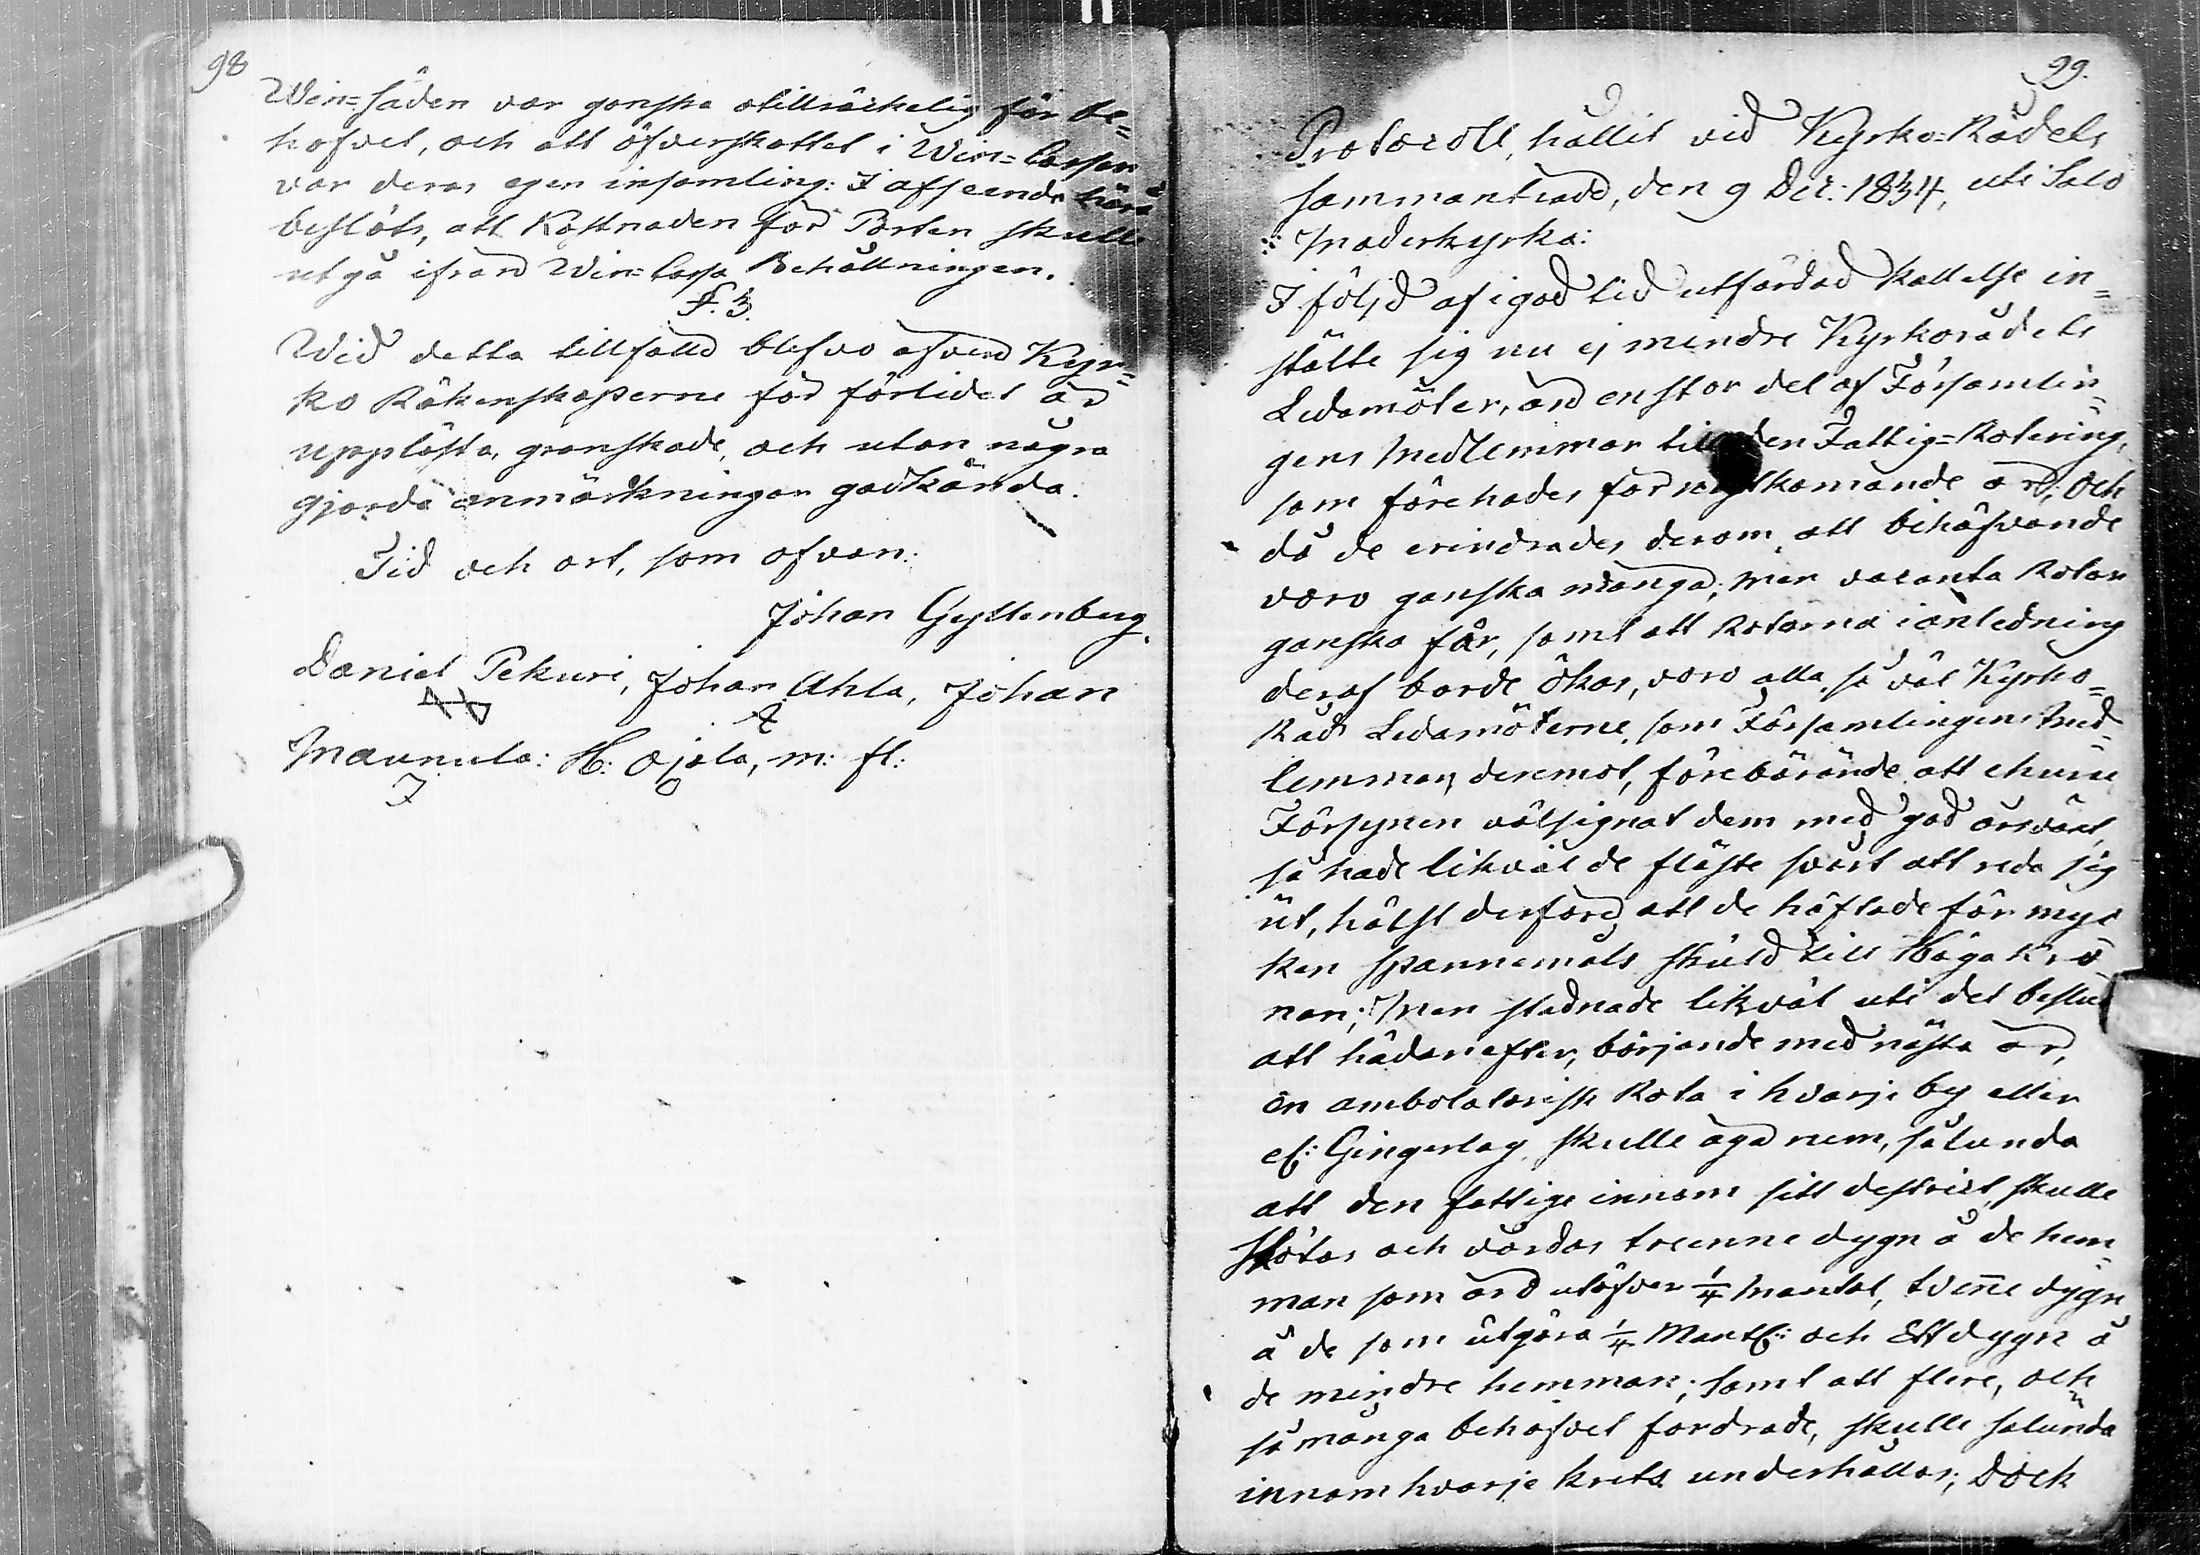 98
Win=säden var ganska otillräckelig för be=
hofvet, och att öfverskottet i Win=Cassan
var deras egen insamling: I afseende härå
beslöts, att Kostnaden för Porten skulle
utgå ifrån Win=Cassa Behållningen.
§. 3.
Wid detta tillfälle blefvo äfven Kyr=
ko Räkenskaperne för förlidet år
upplästa, granskade, och utan några
gjorda anmärkningar godkända.
Tid och ort, som ofvan:
Johan Gyllenberg.
Daniel Pekuri, Johan Ahla, Johan
Maunula: H: Ojala, m: fl:
99.
Protocoll, hållit vid Kyrko=Rådets
sammanträde, den 9 Dec: 1834, uti Salo
Moderkyrka:
I följd af i god tid utfärdad kallelse in=
stälte sig nu ej mindre Kyrkorådets
Ledamöter, än en stor del af Församlin=
gens Medlemmar till den Fattig=Rotering,
som förehades för nästkomande år; och
då de erindrades derom, att behöfvande
voro ganska många; men vacanta Rotar
ganska få, samt att Rotarna i anledning
deraf borde ökas, voro alla så väl Kyrko=
Råds Ledamöterne, som Församlingens Med=
lemmar, deremot, förebärande att ehuru
Försynen välsignat dem med god årsväxt,
så hade likväl de fläste svårt att reda sig
ut, hälst derföre, att de häftade för myc
ken spannemåls skuld till Höga Kro
nan; Men stadnade likväl uti det beslut
att hädanefter, börjande med nästa år,
en ambolatorisk Rota i hvarje by eller
el: Gingerlag, skulle äga rum, sålunda
att den fattige innom sitt destrict, skulle
Skötas och vårdas treenne dygn å de hem=
man som äro utöfver 1/4 Mantal, tvenne dygn
å de som utgöra 1/4 Mantl: och Ett dygn å
de mindre hemman; samt att flere, och
så många behofvet fordrade, skulle sålunda
innom hvarje krets underhållas; Dock